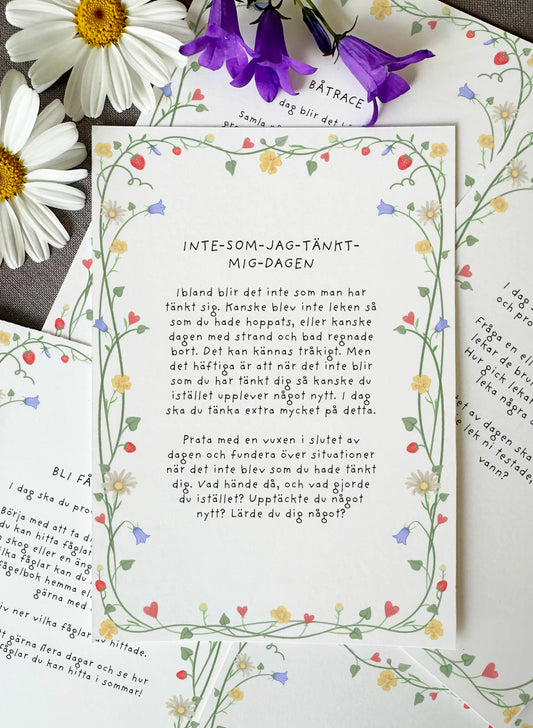 BÅTRACE
dag blir det
Samla
INTE-SOM-JAG-TÄNKT-
MIG-DAGEN
Ibland blir det inte som man har
tänkt sig. Kanske blev inte leken så
som du hade hoppats, eller kanske
dagen med strand och bad regnade
bort. Det kan kännas tråkigt. Men
det häftiga är att när det inte blir
som du har tänkt dig så kanske du
istället upplever något nytt. I dag
ska du tänka extra mycket på detta.
Prata med en vuxen i slutet av
dagen och fundera över situationer
när det inte blev som du hade tänkt
dig. Vad hände då, och vad gjorde
du istället? Upptäckte du något
nytt? Lärde du dig något?
BLI FÅ
I dag ska du pro
Börja med att ta d
du kan hitta fåglar
skog eller en äng
ilka fåglar kan du
fågelbok hemma el
gärna med
iv ner vilka fåglar du hittade.
t gärna flera dagar och se hur
fåglar du kan hitta i sommar!
I dag s
och pro
Fråga en ell
lekar de bru
Hur gick lekar
leka några
et av dagen ska
e lek ni testade
vann?